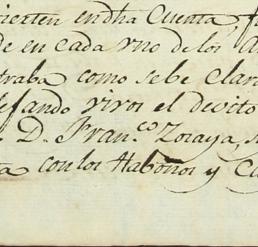 vierten en dha Cuenta, 
de en cada vno de los
traba como se be Clar
dejando vivos el devito
D. Fran.co Zoraya,
con los Habonos y